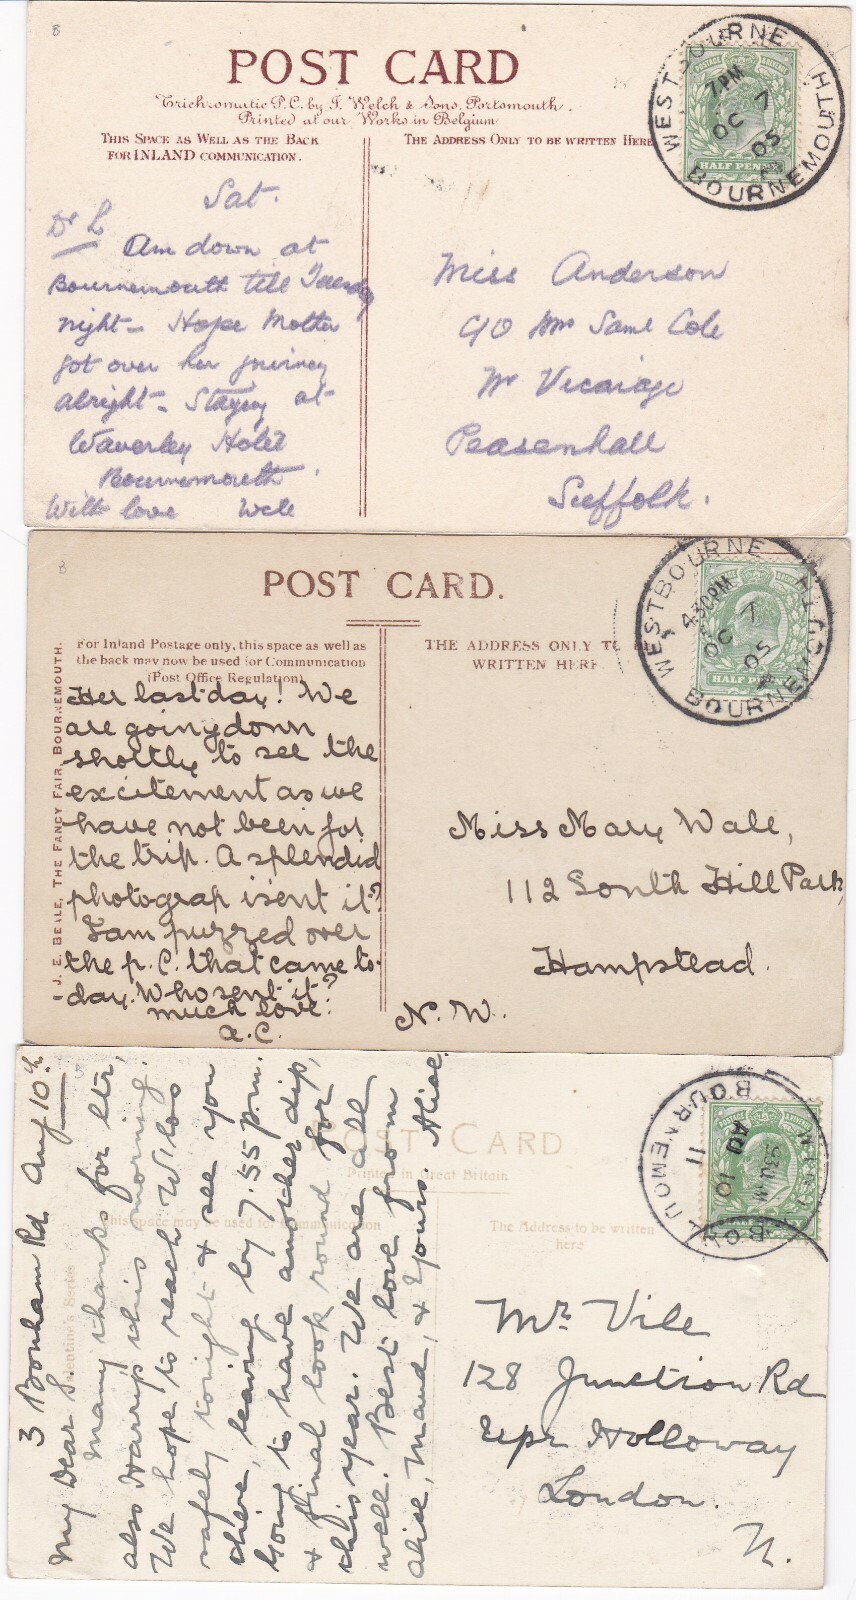 POST CARD
Trichromatic P.C. by J. Welch & Sons, Portsmouth.
Printed at our Works in Belgium
THIS SPACE AS WELL AS THE BACK
FOR INLAND COMMUNICATION.
THE ADDRESS ONLY TO BE WRITTEN HERE
WESTBOURNE
BOURNEMOUTH
7 PM
OC 7
05
HALF PENNY
Sat.
Dr L
Am down at
Bournemouth till Tuesday
night - Hope Mother
got over her journey
alright - Staying at
Waverley Hotel
Bournemouth.
With love
Miss Anderson
c/o Mrs Saml Cole
Nr Vicarage
Peasenhall
Suffolk.
POST CARD.
For Inland Postage only, this space as well as
the back may now be used for Communication
(Post Office Regulation)
THE ADDRESS ONLY TO BE
WRITTEN HERE
J. E. BEALE, THE FANCY FAIR, BOURNEMOUTH.
WESTBOURNE
BOURNEMOUTH
4.30PM
OC 7
05
HALF PENNY
Her last day! We
are going down
shortly to see the
excitement as we
have not been for
the trip. A splendid
photograp isent it?
I am puzzed over
the p.C. that came to-
day. Who sent it?
much love.
a.C.
Miss Mary Wale,
112 South Hill Park,
Hampstead.
N.W.
POST CARD
Printed in Great Britain
This space may be used for communication
The Address to be written
here
Valentine's Series
BOURNEMOUTH
AU 10
11
3 Bonham Rd. Aug 10th
My Dear S.
Many thanks for ltr,
also Harry's this morning.
We hope to reach W'loo
safely tonight & see you
there, leaving by 7.55 p.m.
Going to have another dip,
& final look round for
this year. We are all
well. Best love from
Alice, Maud, & Yours Alice.
Mr. Vile
128 Junction Rd
Upr Holloway
London.
N.